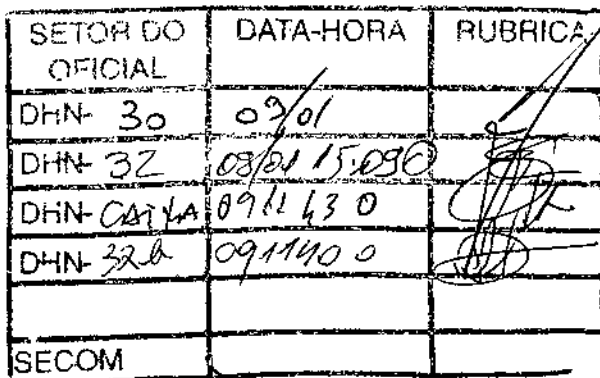 SETOR DO OFICIAL DATA-HORA RUBRICA
DHN- 30 09/01
DHN- 32
DHN- CAIXA 0911430
DHN- 32b 0911400
SECOM